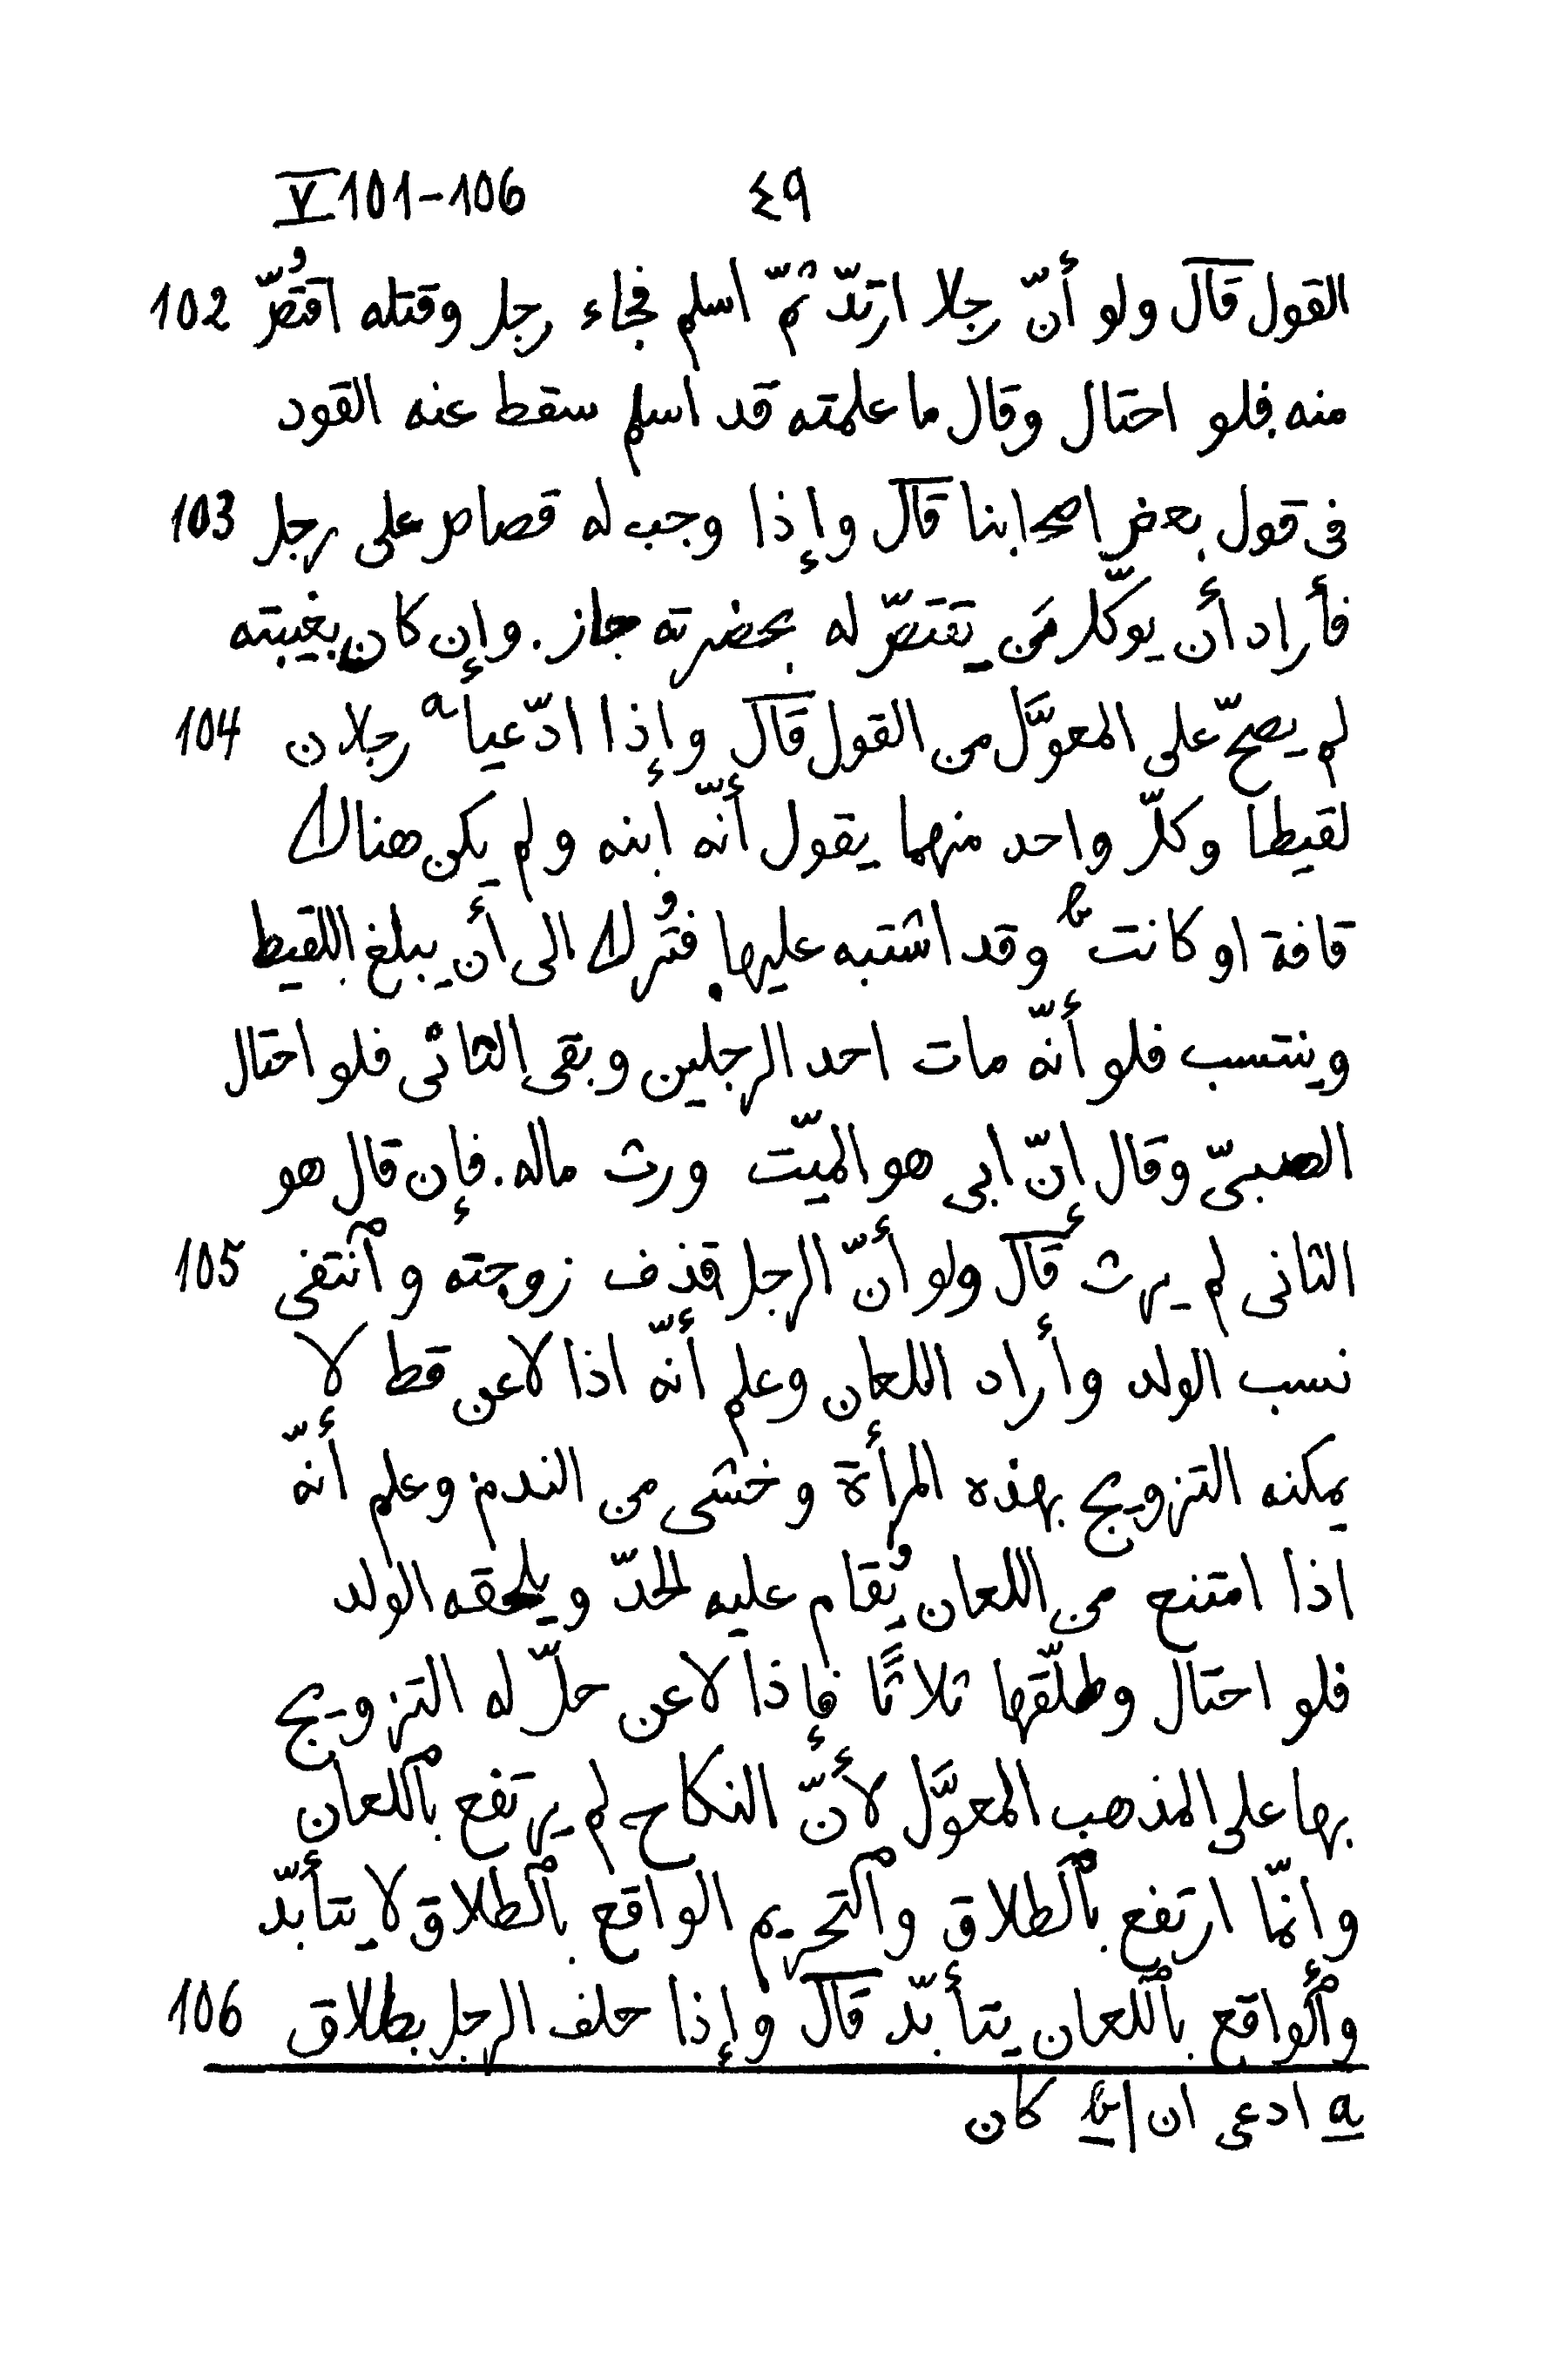 V 101-106 ٤٩
القول قال ولو أنّ رجلا ارتدّ ثمّ اسلم فجاء رجل وقتله اقتُصّ 102
منه فلو احتال وقال ما علمته قد اسلم سقط عنه القود
فى قول بعض اصحابنا قال وإذا وجب له قصاص على رجل 103
فأراد أن يوكّل مَن يقتصّ له بحضرته جاز. وإن كان بغيبته
لم يصحّ على المعوَّل من القول قال وإذا ادّعيا a رجلان 104
لقيطا وكلّ واحد منهما يقول أنّه ابنه ولم يكن هناك
قافة او كانت b وقد اشتبه عليها. فتُرك الى أن يبلغ اللقيط
وينتسب فلو أنّه مات احد الرجلين وبقى الثانى فلو احتال
الصبىّ وقال إنّ ابى هو الميّت ورث ماله. فإن قال هو
الثانى لم يرث قال ولو أنّ الرجل قذف زوجته وٱنتفى 105
نسب الولد وأراد اللعان وعلم أنّه اذا لاعن قط لا
يمكنه التزويج بهذه المرأة وخشى من الندم وعلم أنّه
اذا امتنع من اللعان يُقام عليه الحدّ ويلحقه الولد
فلو احتال وطلّقها ثلاثًا فإذا لاعن حلّ له التزويج
بها على المذهب المعوَّل لأنّ النكاح لم يرتفع بٱللعان
وإنّما ارتفع بٱلطلاق وٱلتحريم الواقع بٱلطلاق لا يتأبّد
وٱلواقع بٱللعان يتأبّد قال وإذا حلف الرجل بطلاق 106
a ادعى ان | b كان